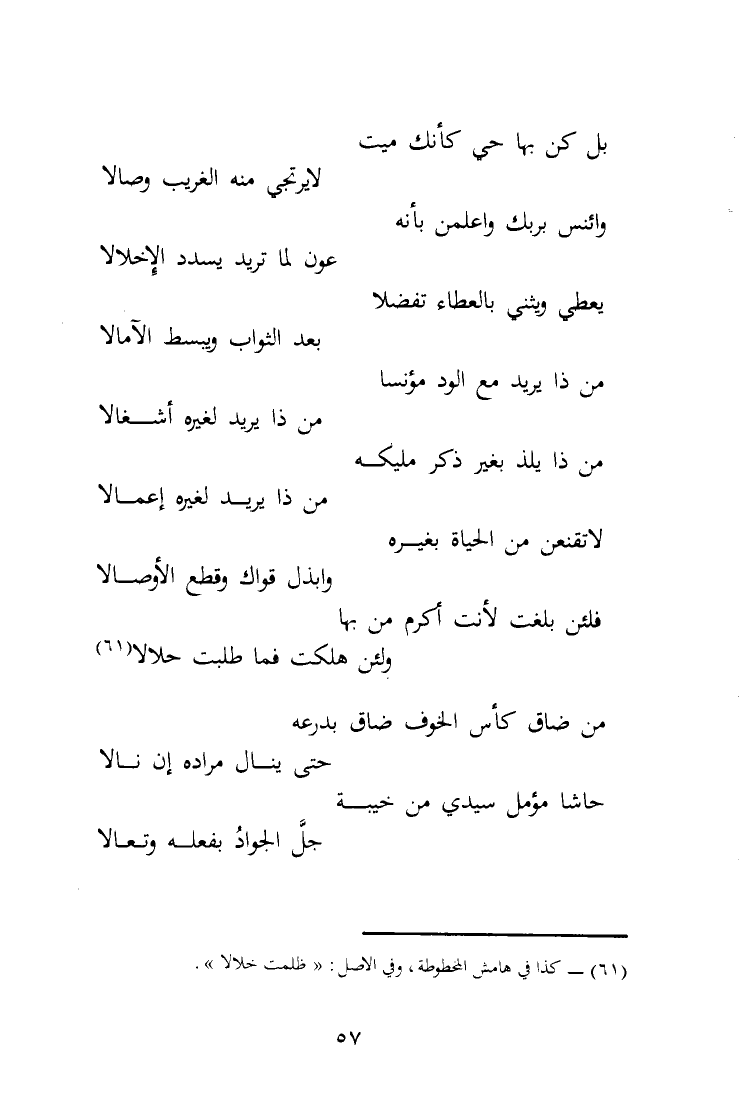 بل كن بها حي كأنك ميت
لايرتجي منه الغريب وصالا
وائنس بربك واعلمن بأنه
عون لما تريد يسدد الإخلالا
يعطي ويثني بالعطاء تفضلا
بعد الثواب ويبسط الآمالا
من ذا يريد مع الود مؤنسا
من ذا يريد لغيره أشغالا
من ذا يلذ بغير ذكر مليكه
من ذا يريد لغيره إعمالا
لاتقنعن من الحياة بغيره
وابذل قواك وقطع الأوصالا
فلئن بلغت لأنت أكرم من بها
ولئن هلكت فما طلبت حلالا(٦١)
من ضاق كأس الخوف ضاق بدرعه
حتى ينال مراده إن نالا
حاشا مؤمل سيدي من خيبة
جلَّ الجوادُ بفعله وتعالا
(٦١) — كذا في هامش المخطوطة ، وفي الاصل : « ظلمت خلالا » .
٥٧